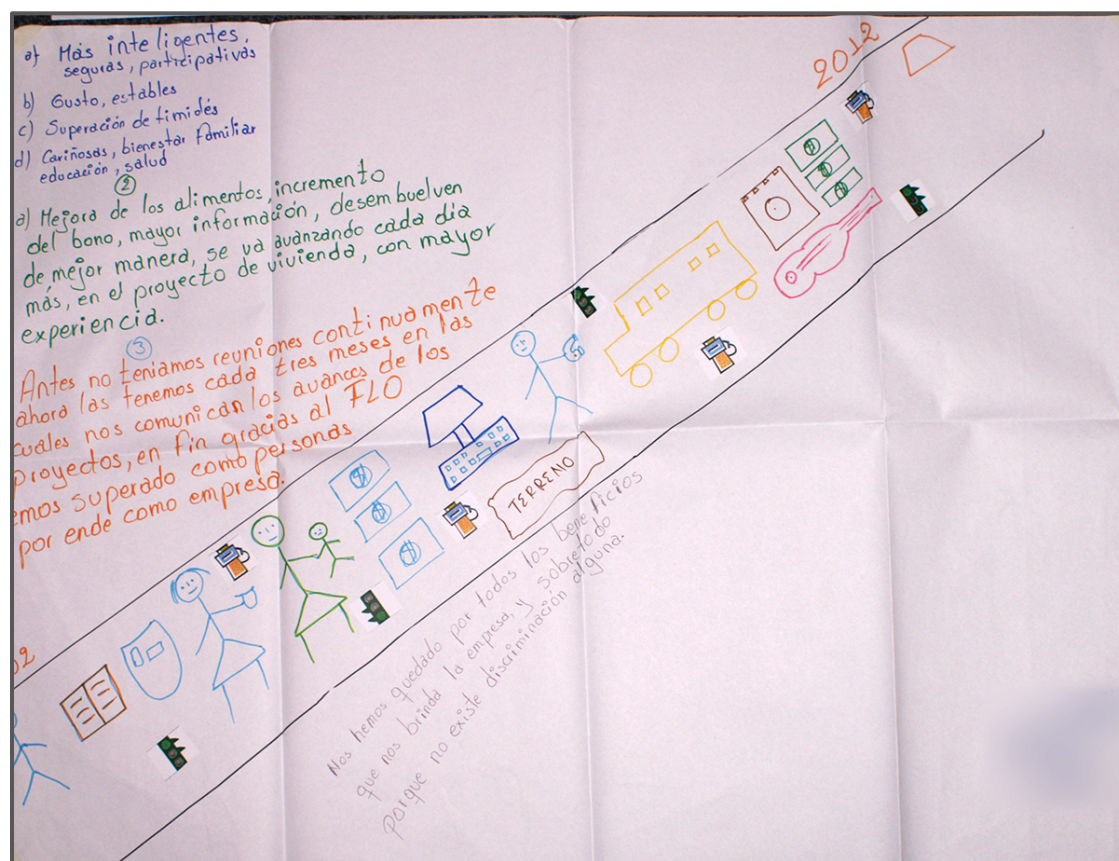 a) Más inteligentes,
seguras, participativas
b) Gusto, estables
c) Superación de timidés
d) Cariñosas, bienestar familiar
educación, salud
②
a) Mejora de los alimentos, incremento
del bono, mayor información, desembuelven
de mejor manera, se va avanzando cada día
más, en el proyecto de vivienda, con mayor
experiencia.
③
Antes no teniamos reuniones continuamente
ahora las tenemos cada tres meses en las
cuales nos comunican los avances de los
proyectos, en fin gracias al FLO
emos superado como personas
por ende como empresa.
2012
TERRENO
02
Nos hemos quedado por todos los beneficios
que nos brinda la empresa, y sobretodo
porque no existe discriminación alguna.